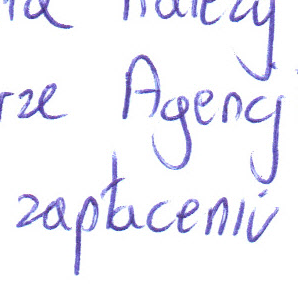 należy
rze Agency
zapłaceniu